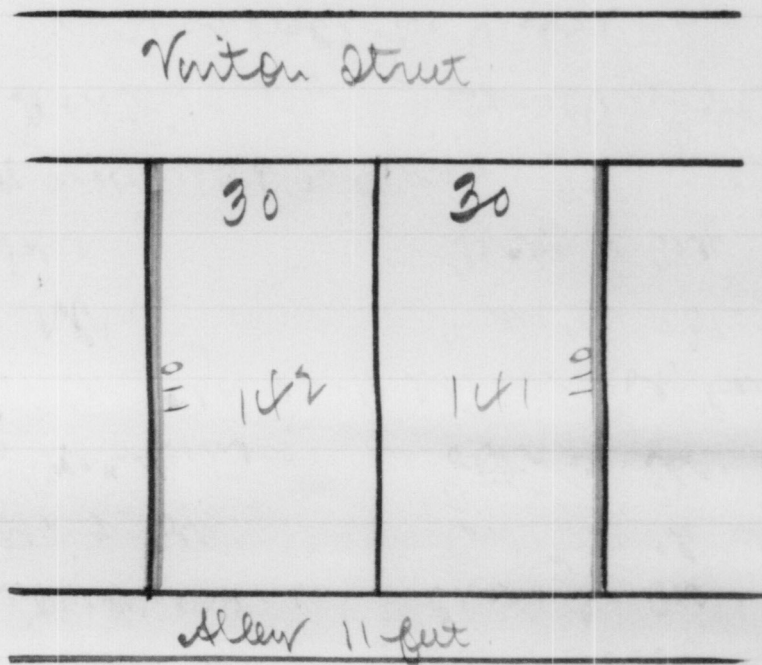 Vinton Street
30 30
110 142 141 110
Alley 11 feet